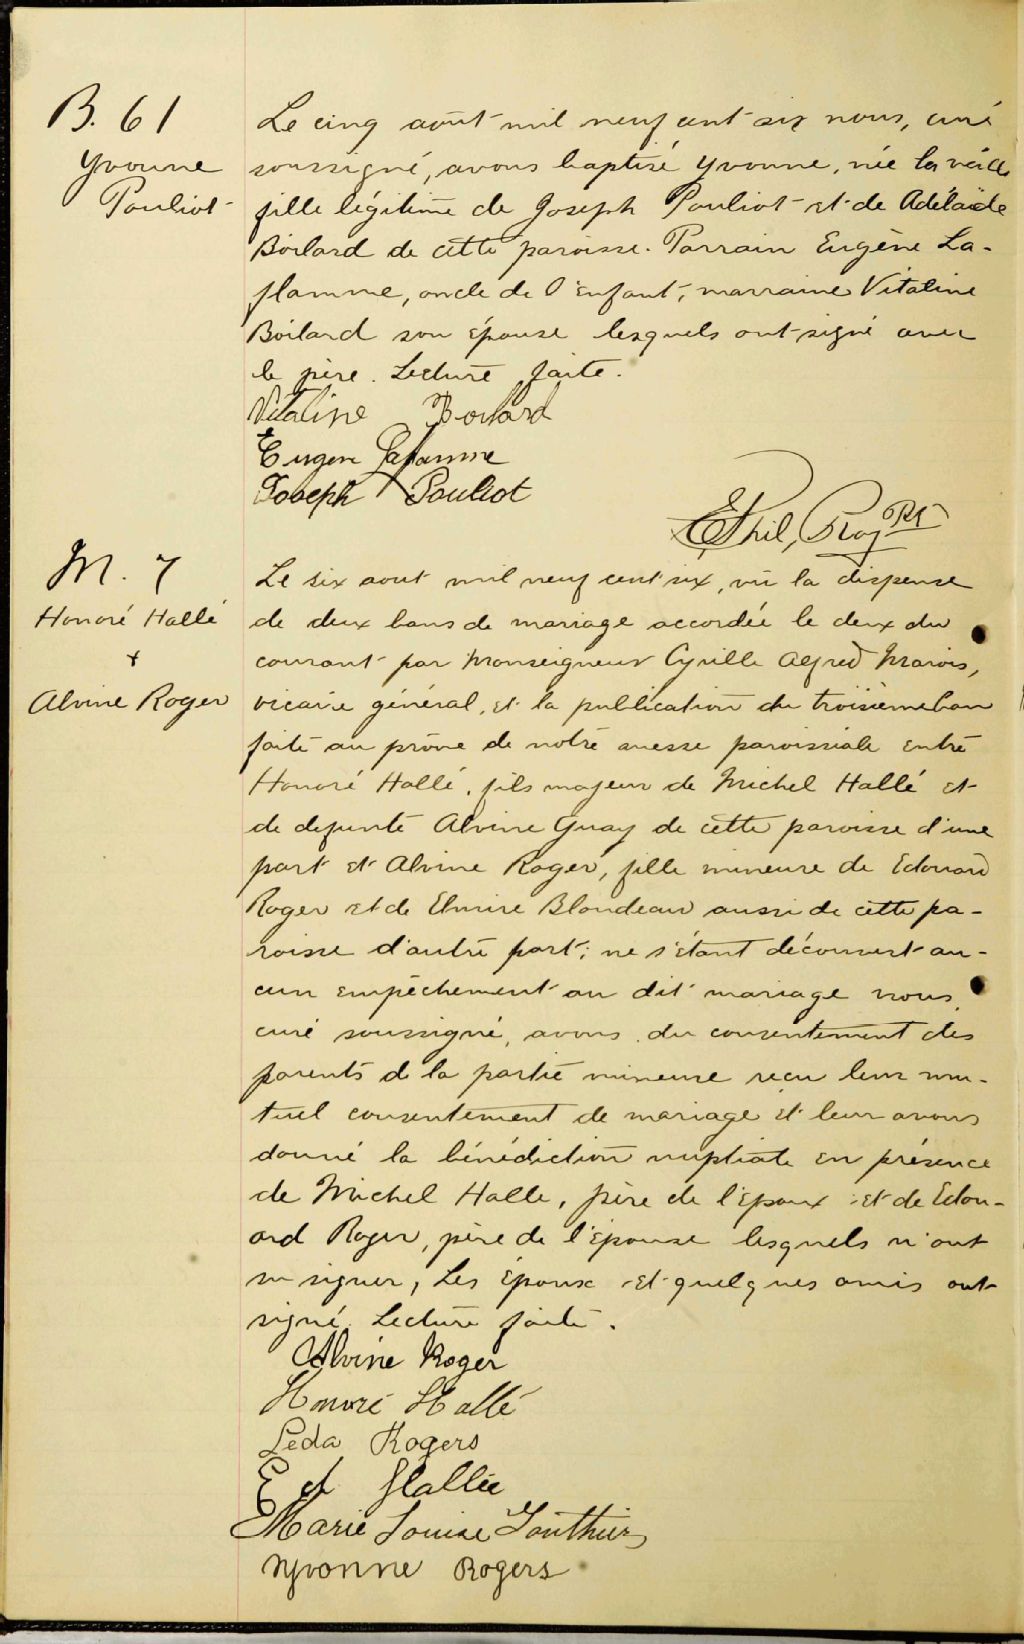 B. 61
Yvonne
Pouliot
Le cinq août mil neuf cent six nous, curé
soussigné, avons baptisé Yvonne, née la veille
fille légitime de Joseph Pouliot et de Adélaïde
Boilard de cette paroisse. Parrain Eugène La-
flamme, oncle de l'enfant, marraine Vitaline
Boilard son épouse lesquels ont signé avec
le père. Lecture faite.
Vitaline Boilard
Eugene Laflamme
Joseph Pouliot
Phil, Roy Ptr
M. 7
Honoré Hallé
+
Alvine Roger
Le six aout mil neuf cent six, vu la dispense
de deux bans de mariage accordée le deux du
courant par Monseigneur Cyrille Alfred Marois,
vicaire général, et la publication du troisième ban
faite au prône de notre messe paroissiale entre
Honoré Hallé, fils majeur de Michel Hallé et
de defunte Alvine Guay de cette paroisse d'une
part et Alvine Roger, fille mineure de Edouard
Roger et de Elmire Blondeau aussi de cette pa-
roisse d'autre part; ne s'étant découvert au-
cun empêchement au dit mariage nous,
curé soussigné, avons du consentement des
parents de la partie mineure reçu leur mu-
tuel consentement de mariage et leur avons
donné la bénédiction nuptiale en présence
de Michel Halle, père de l'époux et de Edou-
ard Roger, père de l'épouse lesquels n'ont
su signer, Les époux et quelques amis ont
signé. Lecture faite.
Alvine Roger
Honoré Hallé
Léda Rogers
E d Hallée
Marie Louise Gauthier
Yvonne Rogers